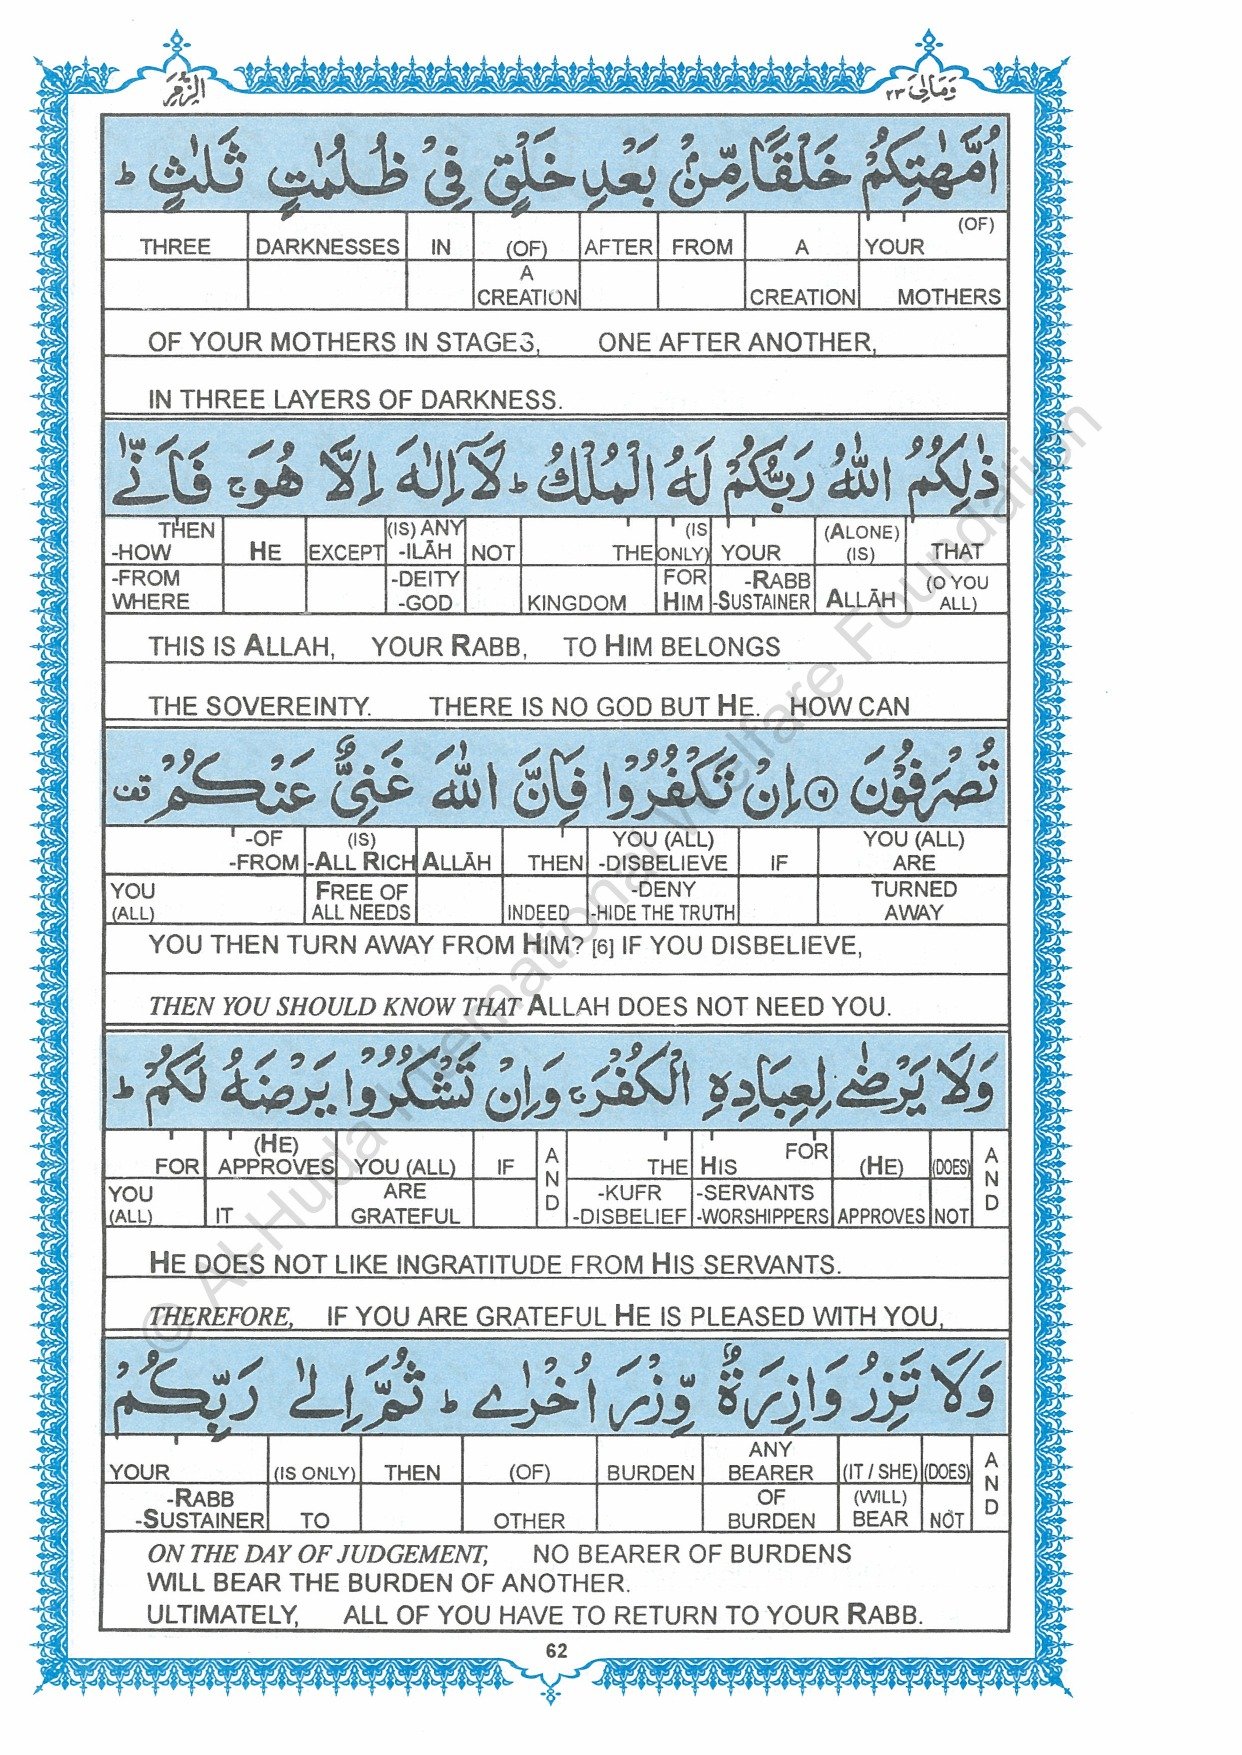 الزمر
ومالى ٢٣
اُمَّهٰتِكُمْ خَلْقًا مِّنْۢ بَعْدِ خَلْقٍ فِيْ ظُلُمٰتٍ ثَلٰثٍ ؕ
THREE DARKNESSES IN (OF) AFTER FROM A YOUR (OF)
A CREATION CREATION MOTHERS
OF YOUR MOTHERS IN STAGES, ONE AFTER ANOTHER,
IN THREE LAYERS OF DARKNESS.
ذٰلِكُمُ اللّٰهُ رَبُّكُمْ لَهُ الْمُلْكُ ؕ لَاۤ اِلٰهَ اِلَّا هُوَ ۚ فَاَنّٰى
THEN -HOW HE EXCEPT (IS) ANY -ILĀH NOT THE (IS ONLY) YOUR (ALONE) (IS) THAT
-FROM WHERE -DEITY -GOD KINGDOM FOR HIM -RABB -SUSTAINER ALLĀH (O YOU ALL)
THIS IS ALLAH, YOUR RABB, TO HIM BELONGS
THE SOVEREINTY. THERE IS NO GOD BUT HE. HOW CAN
تُصْرَفُوْنَ ﴿٦﴾ اِنْ تَكْفُرُوْا فَاِنَّ اللّٰهَ غَنِيٌّ عَنْكُمْ قف
-OF -FROM (IS) -ALL RICH ALLĀH THEN YOU (ALL) -DISBELIEVE IF YOU (ALL) ARE
YOU (ALL) FREE OF ALL NEEDS INDEED -DENY -HIDE THE TRUTH TURNED AWAY
YOU THEN TURN AWAY FROM HIM? [6] IF YOU DISBELIEVE,
THEN YOU SHOULD KNOW THAT ALLAH DOES NOT NEED YOU.
وَلَا يَرْضٰى لِعِبَادِهِ الْكُفْرَ ۚ وَاِنْ تَشْكُرُوْا يَرْضَهُ لَكُمْ ؕ
FOR (HE) APPROVES YOU (ALL) IF AND THE HIS FOR (HE) (DOES) AND
YOU (ALL) IT ARE GRATEFUL -KUFR -DISBELIEF -SERVANTS -WORSHIPPERS APPROVES NOT
HE DOES NOT LIKE INGRATITUDE FROM HIS SERVANTS.
THEREFORE, IF YOU ARE GRATEFUL HE IS PLEASED WITH YOU,
وَلَا تَزِرُ وَازِرَةٌ وِّزْرَ اُخْرٰى ؕ ثُمَّ اِلٰى رَبِّكُمْ
YOUR (IS ONLY) THEN (OF) BURDEN ANY BEARER (IT / SHE) (DOES) AND
-RABB -SUSTAINER TO OTHER OF BURDEN (WILL) BEAR NOT
ON THE DAY OF JUDGEMENT, NO BEARER OF BURDENS
WILL BEAR THE BURDEN OF ANOTHER.
ULTIMATELY, ALL OF YOU HAVE TO RETURN TO YOUR RABB.
62
© Al-Huda International Welfare Foundation